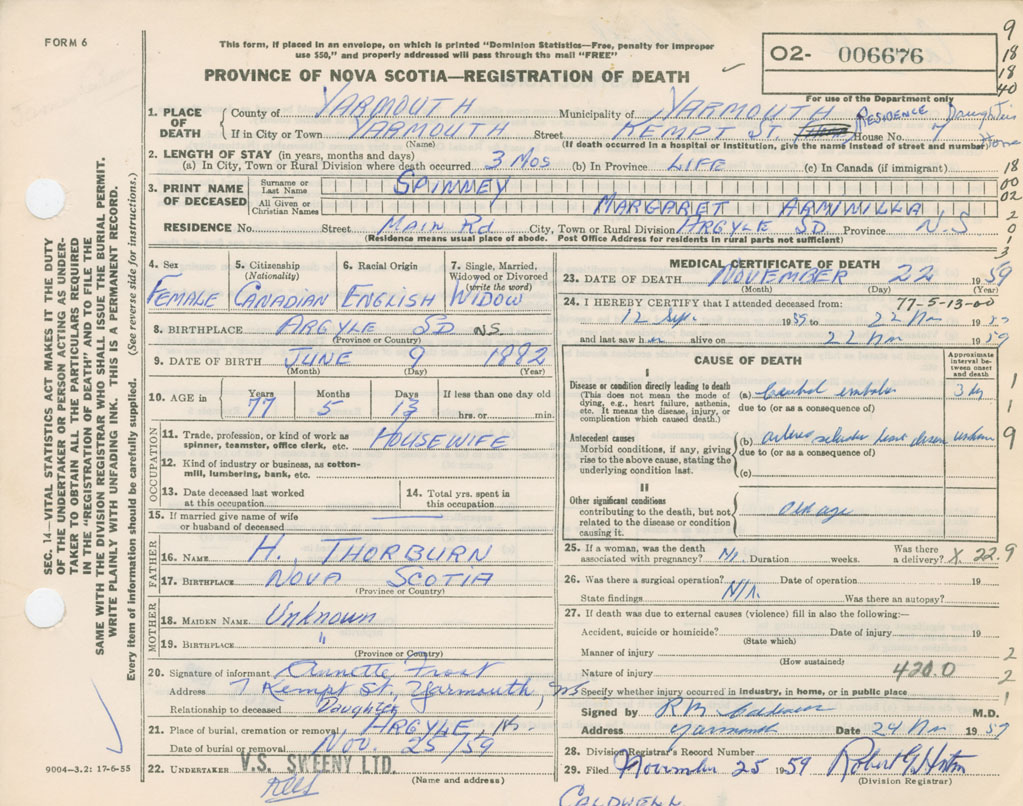 FORM 6
This form, if placed in an envelope, on which is printed "Dominion Statistics—Free, penalty for improper
use $50," and properly addressed will pass through the mail "FREE"
PROVINCE OF NOVA SCOTIA—REGISTRATION OF DEATH
O2- 006676
For use of the Department only
9
18
18
40
1. PLACE OF DEATH
County of YARMOUTH Municipality of YARMOUTH RESIDENCE Daughters
If in City or Town YARMOUTH Street KEMPT ST. House No. 7 Home
(Name) (If death occurred in a hospital or institution, give the name instead of street and number)
2. LENGTH OF STAY (in years, months and days)
(a) In City, Town or Rural Division where death occurred 3 Mos (b) In Province LIFE (c) In Canada (if immigrant)
18
3. PRINT NAME OF DECEASED
Surname or Last Name SPINNEY
00
All Given or Christian Names MARGARET ARMINILLA
02
RESIDENCE No. Street MAIN Rd City, Town or Rural Division ARGYLE SD Province N.S
(Residence means usual place of abode. Post Office Address for residents in rural parts not sufficient)
2
0
1
3
4. Sex FEMALE
5. Citizenship (Nationality) CANADIAN
6. Racial Origin ENGLISH
7. Single, Married, Widowed or Divorced (write the word) WIDOW
8. BIRTHPLACE ARGYLE SD NS
(Province or Country)
9. DATE OF BIRTH JUNE 9 1882
(Month) (Day) (Year)
10. AGE in Years 77 Months 5 Days 13 If less than one day old
hrs. or min.
OCCUPATION
11. Trade, profession, or kind of work as
spinner, teamster, office clerk, etc. HOUSEWIFE
12. Kind of industry or business, as cotton-
mill, lumbering, bank, etc.
13. Date deceased last worked
at this occupation
14. Total yrs. spent in
this occupation
15. If married give name of wife
or husband of deceased
FATHER
16. NAME H. THORBURN
17. BIRTHPLACE NOVA SCOTIA
(Province or Country)
MOTHER
18. MAIDEN NAME Unknown
19. BIRTHPLACE "
(Province or Country)
20. Signature of informant Annette Frost
Address 7 Kempt St., Yarmouth, NS
Relationship to deceased Daughter
21. Place of burial, cremation or removal ARGYLE, N.S.
Date of burial or removal Nov. 25/59
22. UNDERTAKER V.S. SWEENY LTD.
(Name and address)
MEDICAL CERTIFICATE OF DEATH
23. DATE OF DEATH NOVEMBER 22 1959
(Month) (Day) (Year)
24. I HEREBY CERTIFY that I attended deceased from: 77-5-13-00
12 Sept 1959 to 22 Nov 19
and last saw her alive on 22 Nov 1959
CAUSE OF DEATH
Approximate interval between onset and death
I
Disease or condition directly leading to death
(This does not mean the mode of
dying, e.g., heart failure, asthenia,
etc. It means the disease, injury, or
complication which caused death.)
(a) Cerebral embolus
due to (or as a consequence of)
1
Antecedent causes
Morbid conditions, if any, giving
rise to the above cause, stating the
underlying condition last.
(b) arteriosclerotic heart disease unknown
due to (or as a consequence of)
(c)
1
9
II
Other significant conditions
contributing to the death, but not
related to the disease or condition
causing it.
old age
25. If a woman, was the death
associated with pregnancy? Duration weeks. Was there
a delivery? X. 22.9
26. Was there a surgical operation? Date of operation 19
State findings N/A. Was there an autopsy?
27. If death was due to external causes (violence) fill in also the following:—
Accident, suicide or homicide? Date of injury 19
(State which)
Manner of injury 2
(How sustained)
Nature of injury 420.0 2
Specify whether injury occurred in industry, in home, or in public place 1
Signed by M.D.
Address Yarmouth Date 24 Nov 1959
28. Division Registrar's Record Number
29. Filed November 25 1959
(Division Registrar)
CALDWELL
SEC. 14—VITAL STATISTICS ACT MAKES IT THE DUTY
OF THE UNDERTAKER OR PERSON ACTING AS UNDER-
TAKER TO OBTAIN ALL THE PARTICULARS REQUIRED
IN THE "REGISTRATION OF DEATH" AND TO FILE THE
SAME WITH THE DIVISION REGISTRAR WHO SHALL ISSUE THE BURIAL PERMIT.
WRITE PLAINLY WITH UNFADING INK. THIS IS A PERMANENT RECORD.
Every item of information should be carefully supplied. (See reverse side for instructions.)
9004—3.2: 17-6-55